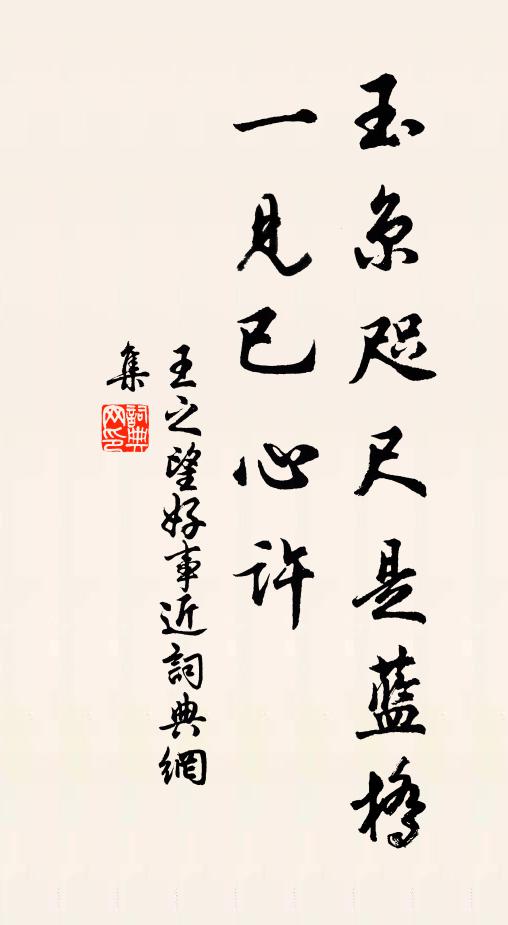 玉京咫尺是藍橋
一見已心許
王之望好事近詞典網
集
詞典网印